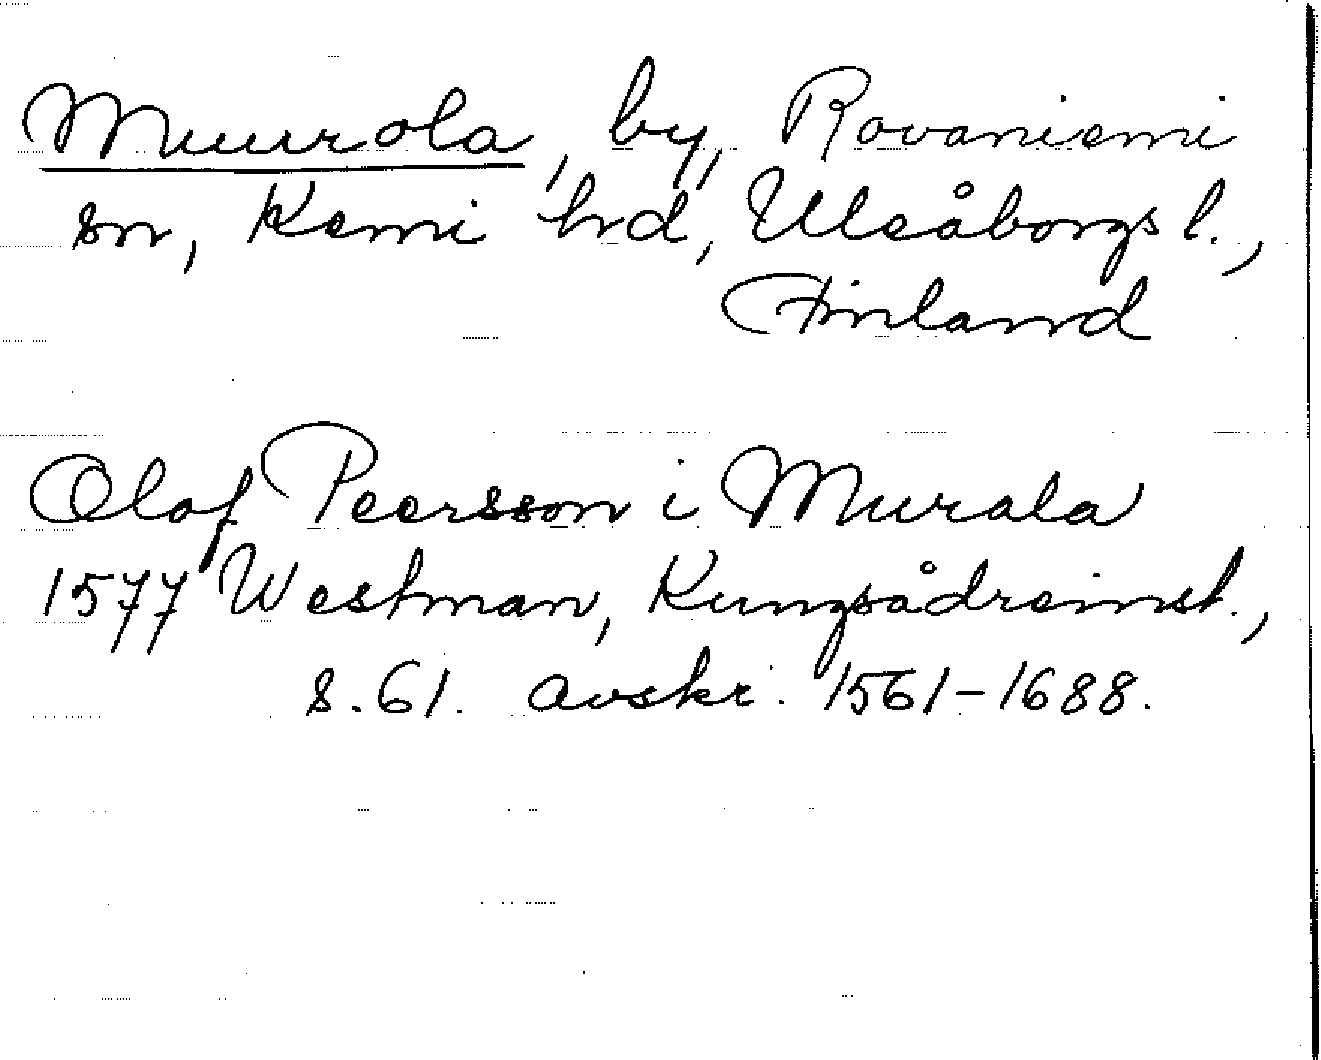 Muurola, by, Rovaniemi
sn, Kemi hrd, Uleåborgs l.,
Finland
Olof Peersson i Murala
1577 Westman, Kungsådreinst.,
s. 61. avskr. 1561-1688.